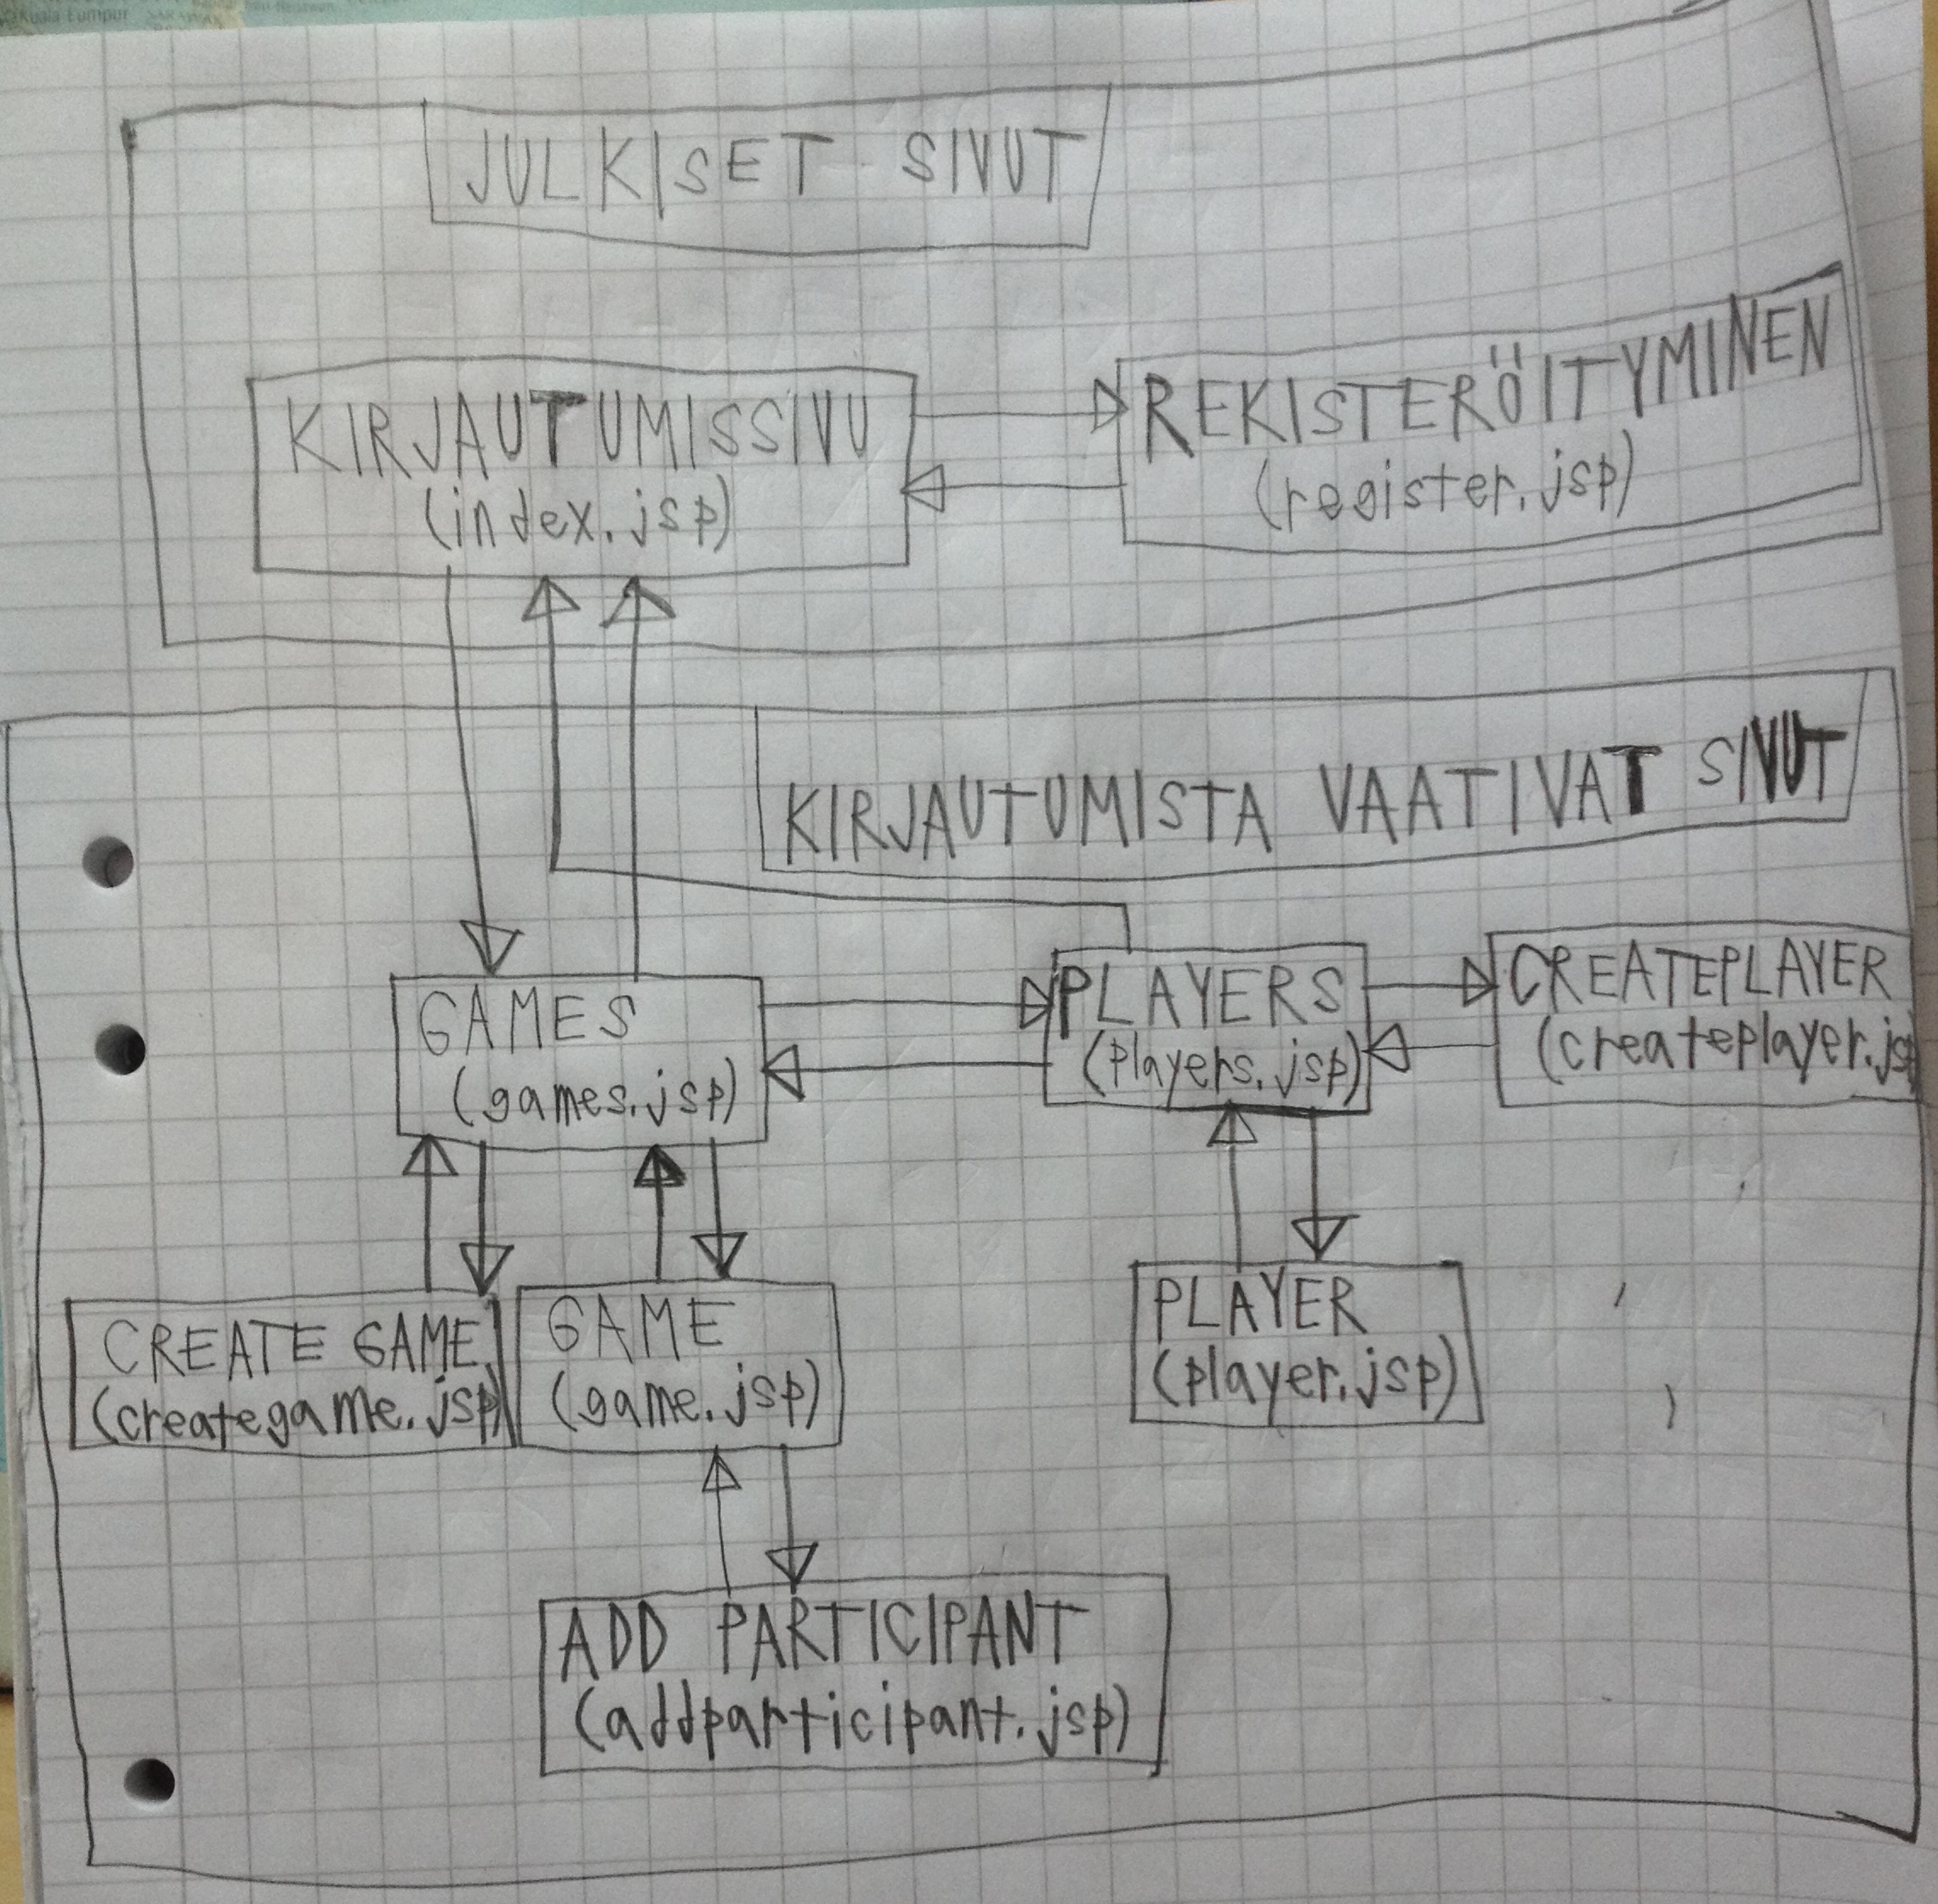 Kuala Lumpur
JULKISET SIVUT
KIRJAUTUMISSIVU
(index.jsp)
REKISTERÖITYMINEN
(register.jsp)
KIRJAUTUMISTA VAATIVAT SIVUT
GAMES
(games.jsp)
PLAYERS
(players.jsp)
CREATEPLAYER
(createplayer.jsp
CREATE GAME
(creategame.jsp)
GAME
(game.jsp)
PLAYER
(player.jsp)
ADD PARTICIPANT
(addparticipant.jsp)